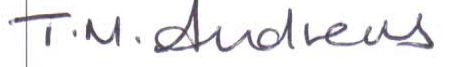 T.M. Andrews